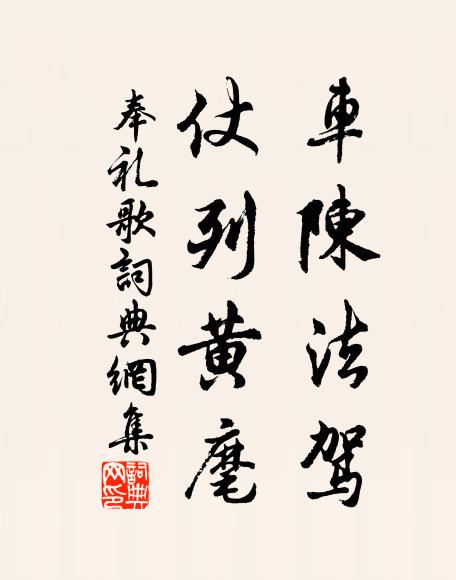 車陳法駕
仗列黄麾
奉礼歌詞典網集
詞典网印